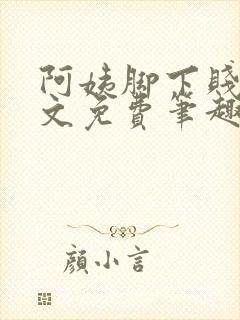 阿姨脚下贱
文免费笔趣
颜小言